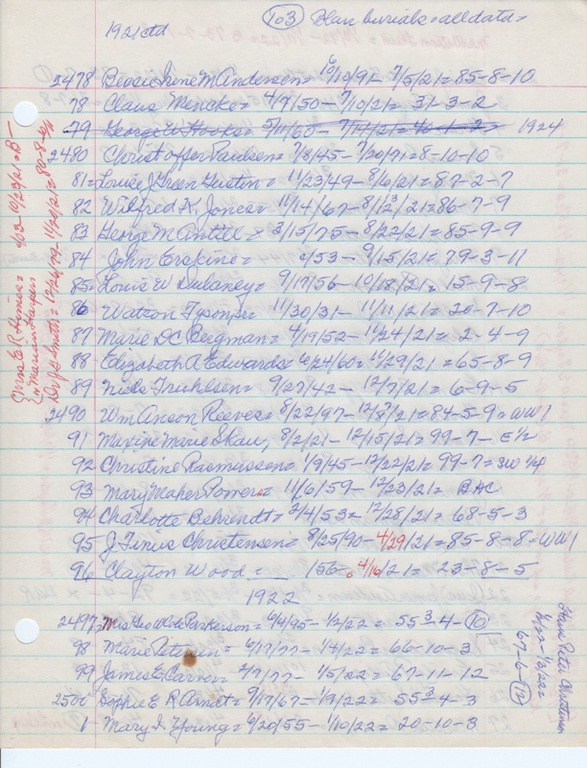 1921 ctd (103) Blair burials = all data =
2478 Bessie Irene M Anderson = 6/10/91 - 7/5/21 = 85-8-10
78 Claus Mencke = 4/7/50 - 7/10/21 = 31-3-2
79 George W Hooks = 5/11/60 - 7/14/21 = 1924
2480 Christoffer Paulsen = 7/8/45 - 7/20/21 = 8-10-10
81 = Louise J Green Gustin = 11/23/49 - 8/6/21 = 87-2-7
82 Wilfred K. Jones = 11/14/67 - 8/12/21 = 86-7-9
83 George M Antill = 3/15/75 - 8/22/21 = 85-9-9
84 John Erskine = /53 - 9/15/21 = 79-3-11
85 = Louis W Dulaney = 9/17/56 - 10/18/21 = 15-9-8
86 Watson Tyson = 11/30/31 - 11/11/21 = 20-7-10
87 Marie DC Bergman = 4/19/52 - 11/24/21 = 2-4-9
88 Elizabeth A Edwards = 6/24/60 = 11/29/21 = 65-8-9
89 Niels Truhlsen = 9/27/42 - 12/7/21 = 6-9-5
2490 Wm Anson Reeves = 8/22/97 - 12/7/21 = 84-5-9 = WW1
91 Maxine Marie Skaw, 8/2/21 - 12/15/21 = 99-7- E 1/2
92 Christine Rasmussen = 1/9/45 - 12/22/21 = 99-7 = SW 1/4
93 Mary Maher Pomeroy = 11/6/59 - 12/23/21 = BHC
94 Charlotte Behrendt = 2/4/53 = 12/28/21 = 68-5-3
95 J Tinus Christensen = 8/25/90 - 4/29/21 = 85-8-8 = WW1
96 Clayton Wood = __ 156 - 4/16/21 = 23-8-5
1922
2497 Mrs Geo W Cole Parkerson = 6/4/95 - 1/2/22 = 55 3-4-(10)
98 Marie Petersen = 6/17/77 - 1/4/22 = 66-10-3
99 James E Carver = 2/7/77 - 1/5/22 = 67-11-12
2500 Sophie E R Arndt = 9/17/67 - 1/9/22 = 55 3-4-3
1 Mary I. Young = 6/20/55 - 1/10/22 = 20-10-3
Hans Peter Christensen
1/3/22
67-6-(12)
10/23/21 = B-
in Marion Harpers
Smith = 11/20/21 =